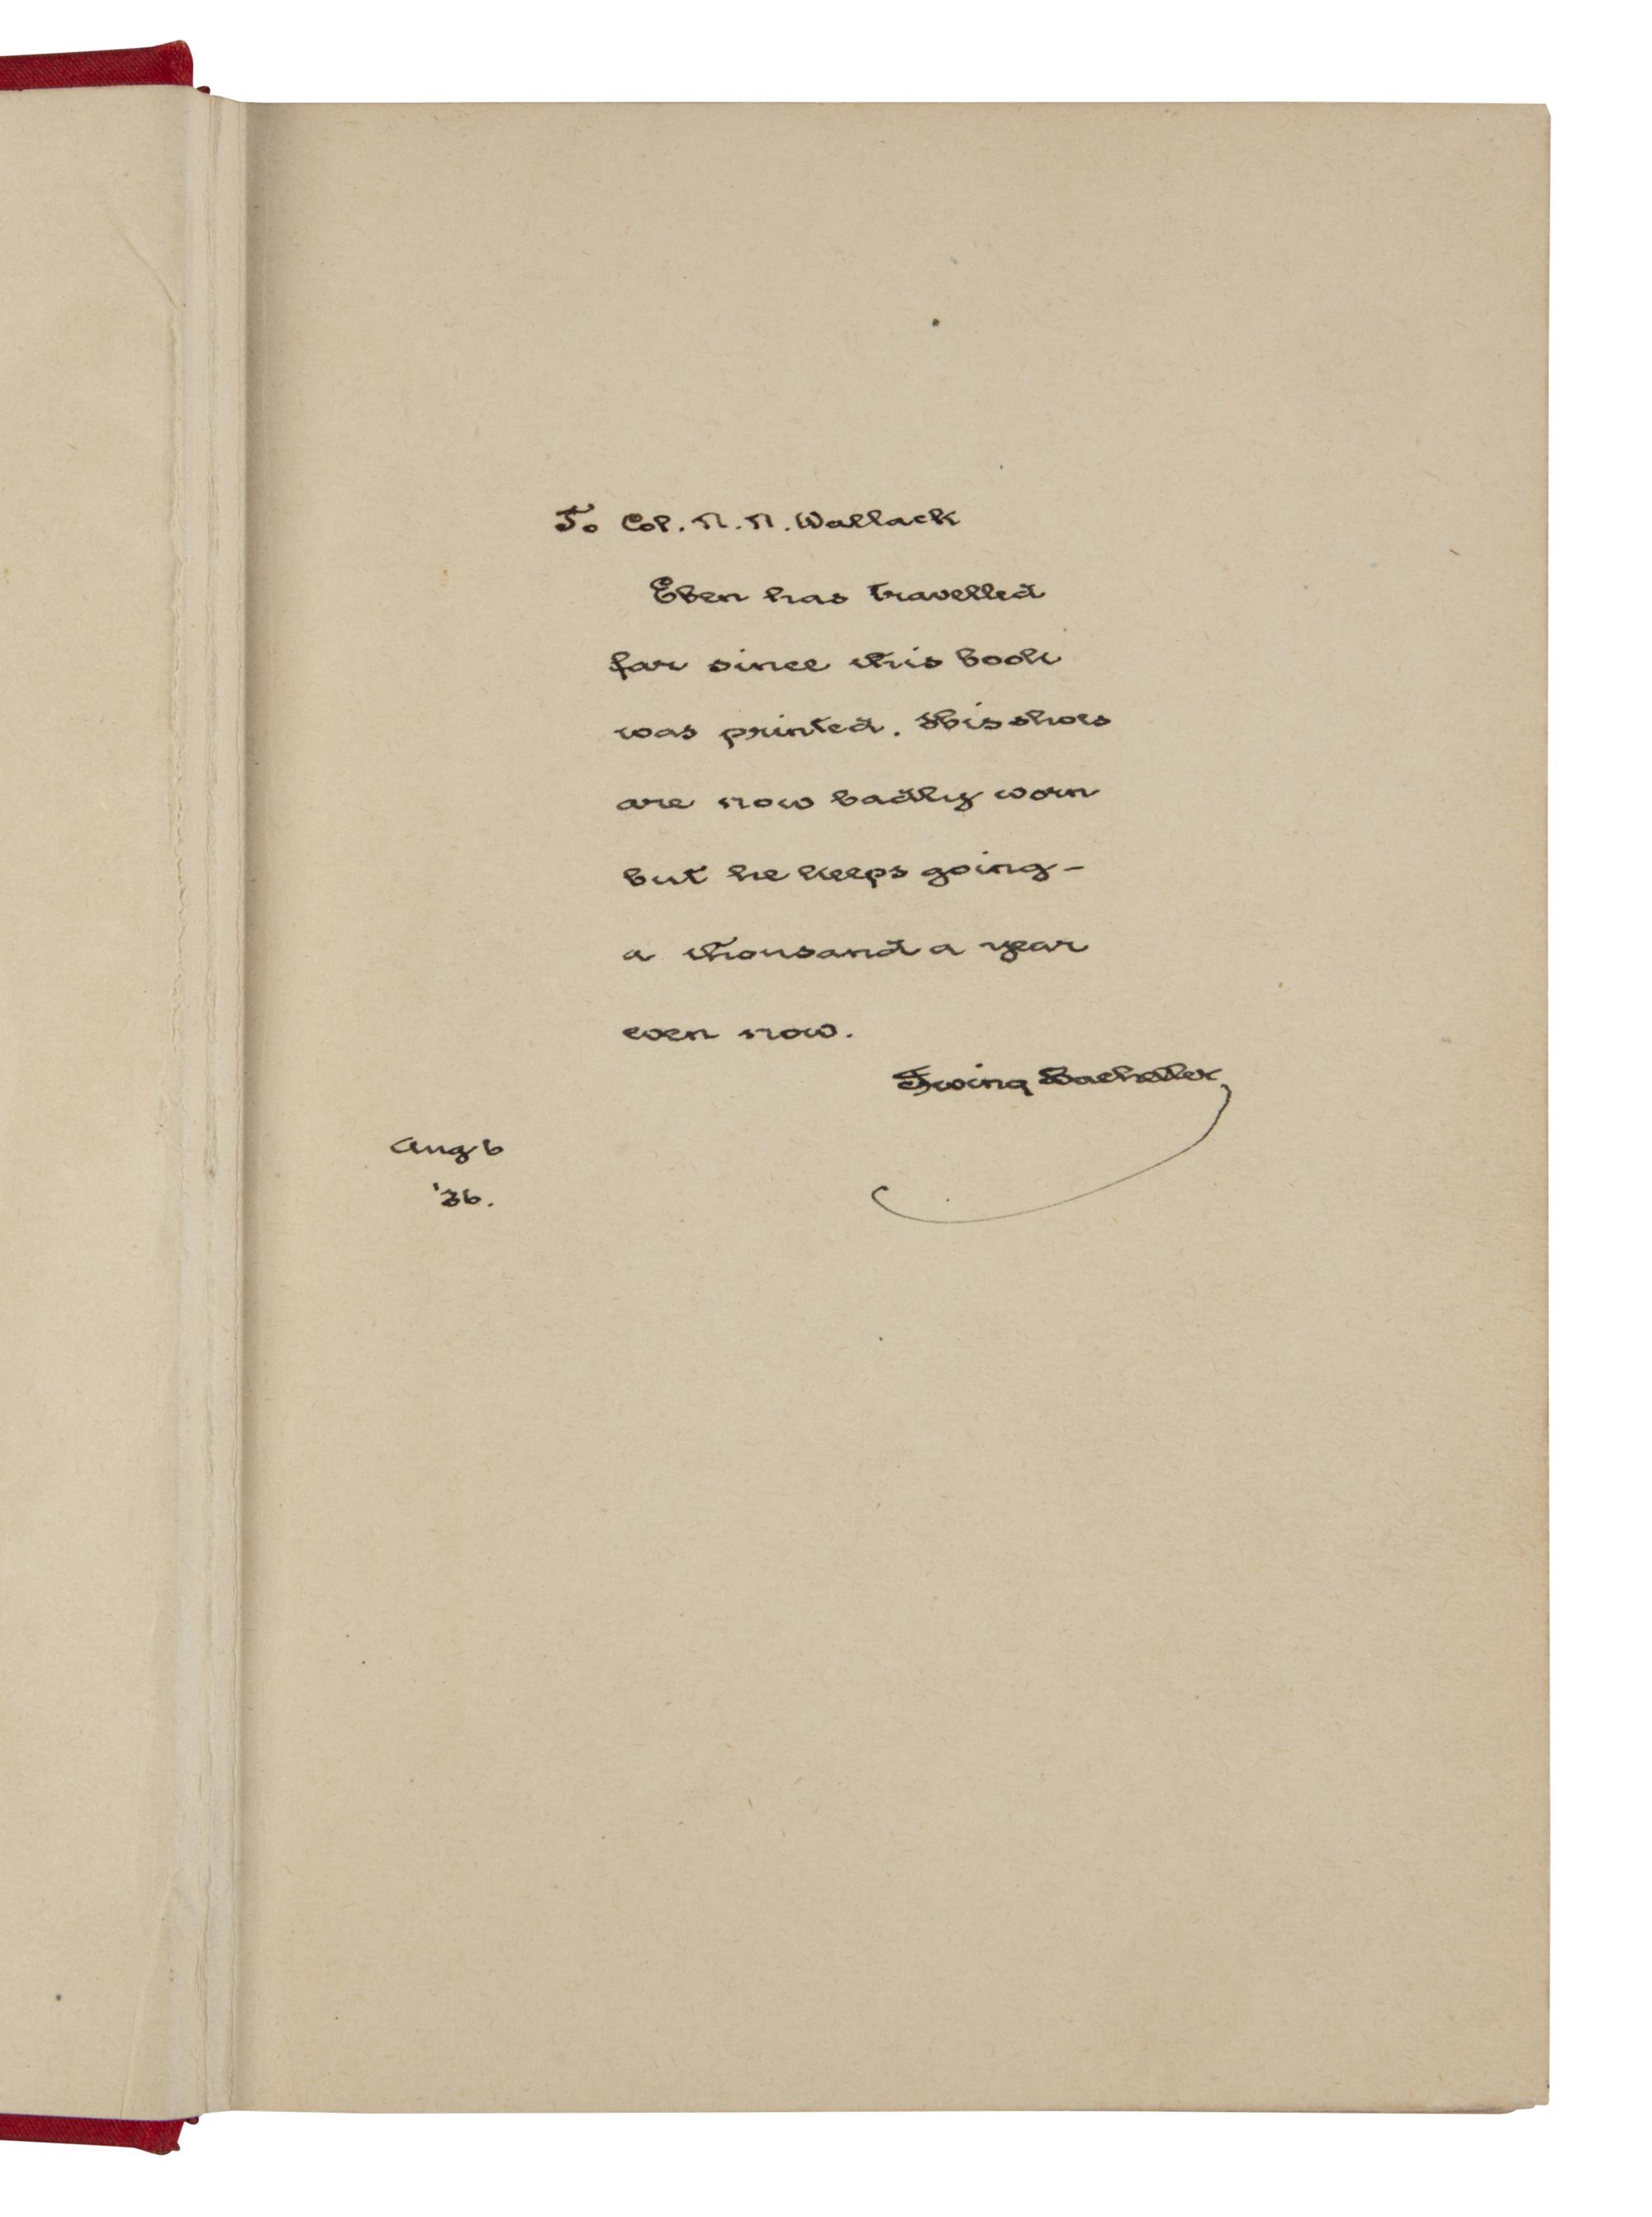 To Col. N. N. Wallack
Eben has travelled
far since this book
was printed. His shoes
are now badly worn
but he keeps going –
a thousand a year
even now.
Irving Bacheller
Aug 6
'36.